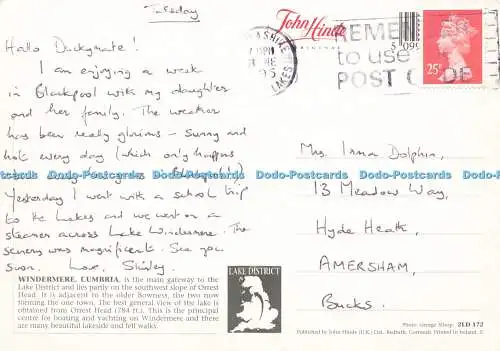 Tuesday
Hallo Duckymate!
I am enjoying a week
in Blackpool with my daughter
and her family. The weather
has been really glorious - sunny and
hot every day (which only happens
Yesterday I went with a school trip
to the Lakes and we went on a
steamer across Lake Windermere. The
scenery was magnificent. See you
soon. Love, Shirley.
WINDERMERE, CUMBRIA, is the main gateway to the
Lake District and lies partly on the southwest slope of Orrest
Head. It is adjacent to the older Bowness, the two now
forming the one town. The best general view of the lake is
obtained from Orrest Head (784 ft.). This is the principal
centre for boating and yachting on Windermere and there
are many beautiful lakeside and fell walks.
LAKE DISTRICT
John Hinde
ORIGINAL
LAKES
REMEMBER
to use
POST CODE
25P
Mrs. Irma Dolphin,
13 Meadow Way,
Hyde Heath,
AMERSHAM,
Bucks.
Dodo-Postcards Dodo-Postcards Dodo-Postcards Dodo-Postcards Dodo-Postcards
Photo: George Allsop. 2LD 172
Published by John Hinde (U.K.) Ltd., Redruth, Cornwall. Printed in Ireland.